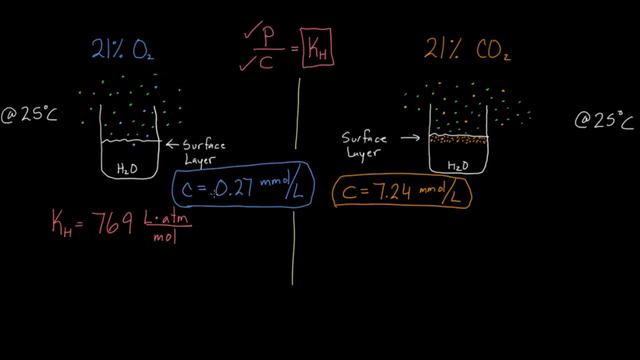 21% O₂
P
C
= K_H
21% CO₂
@25°C
Surface
Layer
H₂O
Surface
Layer
H₂O
@25°C
C = 0.27 mmol/L
C = 7.24 mmol/L
K_H = 769 L·atm
mol